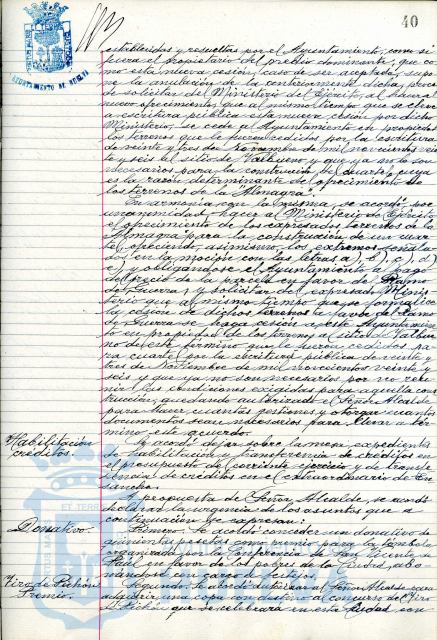 40
AYUNTAMIENTO DE HUELVA
establecidos y resueltos por el Ayuntamiento, como si
fuera el propietario del predio dominante, que co-
mo esta nueva cesión, caso de ser aceptada, supo-
ne la anulación de la anteriormente dicha, procede
solicitar del Ministerio del Ejército, el hacer el
nuevo ofrecimiento, que al mismo tiempo que se eleve
a escritura pública esta nueva cesión por dicho
Ministerio, se ceda al Ayuntamiento en propiedad
los terrenos que le fueron cedidos por la escritura
de veinte y tres de Noviembre de mil novecientos vein-
te y seis al sitio de Valbueno y que ya no le son
necesarios para la construcción del cuartel, cuya
es la razón determinante del ofrecimiento de
los terrenos de la "Almagra".
En armonía con la misma, se acordó por
unanimidad, hacer al Ministerio del Ejército
el ofrecimiento de los expresados terrenos de la
Almagra para la construcción de un cuar-
tel, ofreciendo, asimismo, los extremos señala-
dos en la moción con las letras a), b), c), d)
e), y obligándose el Ayuntamiento a pago
del precio de la parcela en favor de Ramo
de Guerra, y solicitar del expresado Minis-
terio que al mismo tiempo que se formalice
la cesión de dichos terrenos a favor del Ramo
de Guerra se haga cesión a este Ayuntamien-
to en propiedad de los terrenos al sitio de Valbue-
no de este término que le fueron cedidos pa-
ra cuartel por la escritura pública de veinte y
tres de Noviembre de mil novecientos veinte y
seis y que ya no son necesarios por no reu-
nir las condiciones exigidas para aquella cons-
trucción, quedando autorizado el Señor Alcalde
para hacer cuantas gestiones y otorgar cuantos
documentos sean necesarios para llevar a tér-
mino este acuerdo.
Habilitación
créditos.
Se acordó dejar sobre la mesa, expedientes
de habilitación y transferencia de créditos en
el presupuesto del corriente ejercicio y de transfe-
rencia de créditos en el extraordinario de En-
sanche.
A propuesta del Señor Alcalde, se acordó
declarar la urgencia de los asuntos que a
continuación se expresan:
Donativo.
Primero. Se acordó conceder un donativo de
quinientas pesetas como premio para la tómbola
organizada por la Conferencia de San Vicente de
Paul en favor de los pobres de la Ciudad, abo-
nándose con cargo a festejos.
Tiro de Pichón
Premio.
Segundo. Se acordó autorizar al Señor Alcalde para
adquirir una copa con destino al concurso de Tiro
de Pichón que se celebrará en esta Ciudad con